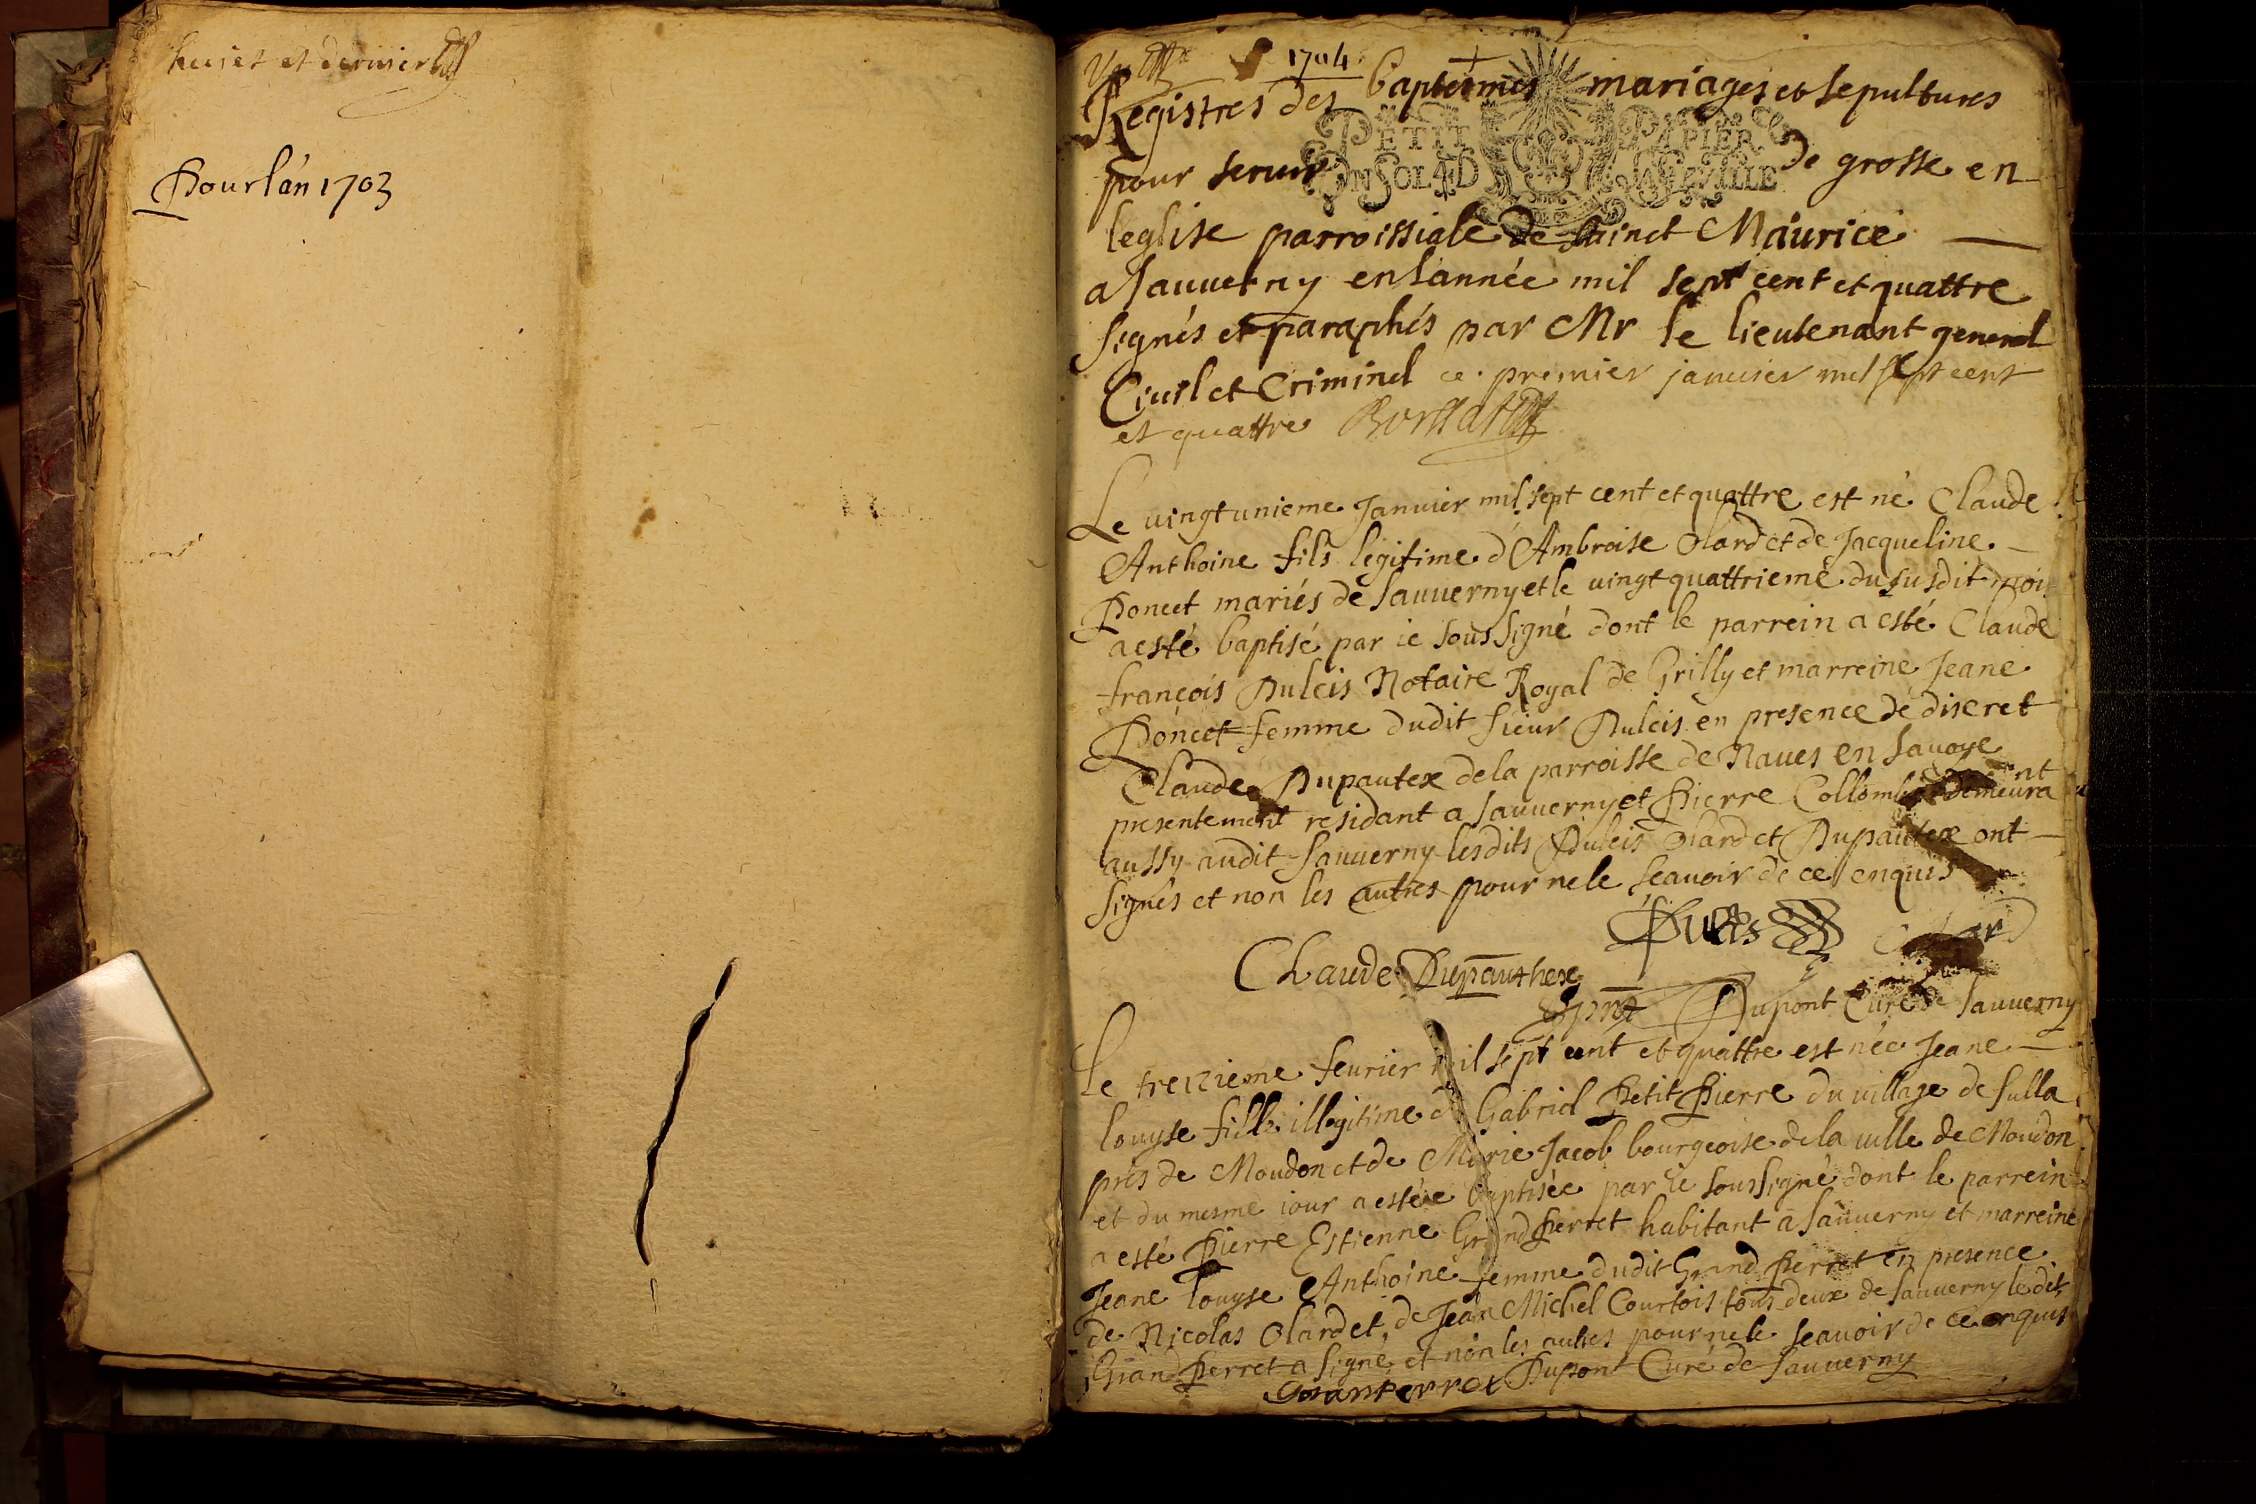 huiet et dernier
Pour lan 1703
1704
Registres des baptesmes mariages et sepultures
PETIT PAPIER
UN SOL 4 D LA FEUILLE
pour seruir de grosse en
leglise parroissiale de sainct Maurice
a sauuerny en lannée mil sept cent et quattre
signés et paraphés par Mr le lieutenant general
Ciuil et Criminel ce premier januier mil sept cent
et quattre
Le uingtunieme Januier mil sept cent et quattre est né Claude
Anthoine fils legitime d'Ambroise Olard et de Jacqueline
Poncet mariés de Sauuerny et le uingtquattrieme du susdit moi
a esté baptisé par ie sous signé dont le parrein a esté Claude
françois Dulcis Notaire Royal de Grilly et marreine Jeane
Poncet femme dudit sieur Dulcis en presence de discret
Claude Dupautex de la parroisse de Naues en Sauoye
presentement residant a Sauuerny et Pierre Collomb demeurant
aussy audit Sauuerny lesdits Dulcis Olard et Dupautex ont
signés et non les autres pour ne le sçauoir de ce enquis
Dulcis
Claude Dupauthex
Dupont Curé de Sauuerny
Le treizieme feurier mil sept cent et quattre est née Jeane
louyse fille illegitime de Gabriel Petit Pierre du uillage de sulla
prés de Moudon et de Marie Jacob bourgeoise de la uille de Moudon
et du mesme iour a estée baptisée par ie sous signé dont le parrein
a esté Pierre Estienne Grand Perret habitant a Sauuerny et marreine
Jeane louyse Anthoine femme dudit Grand Perret en presence
de Nicolas Olardet, de Jean Michel Courtois tous deux de Sauuerny le dit
Grand Perret a signé et non les autres pour ne le sçauoir de ce enquis
Granperret Dupont Curé de Sauuerny